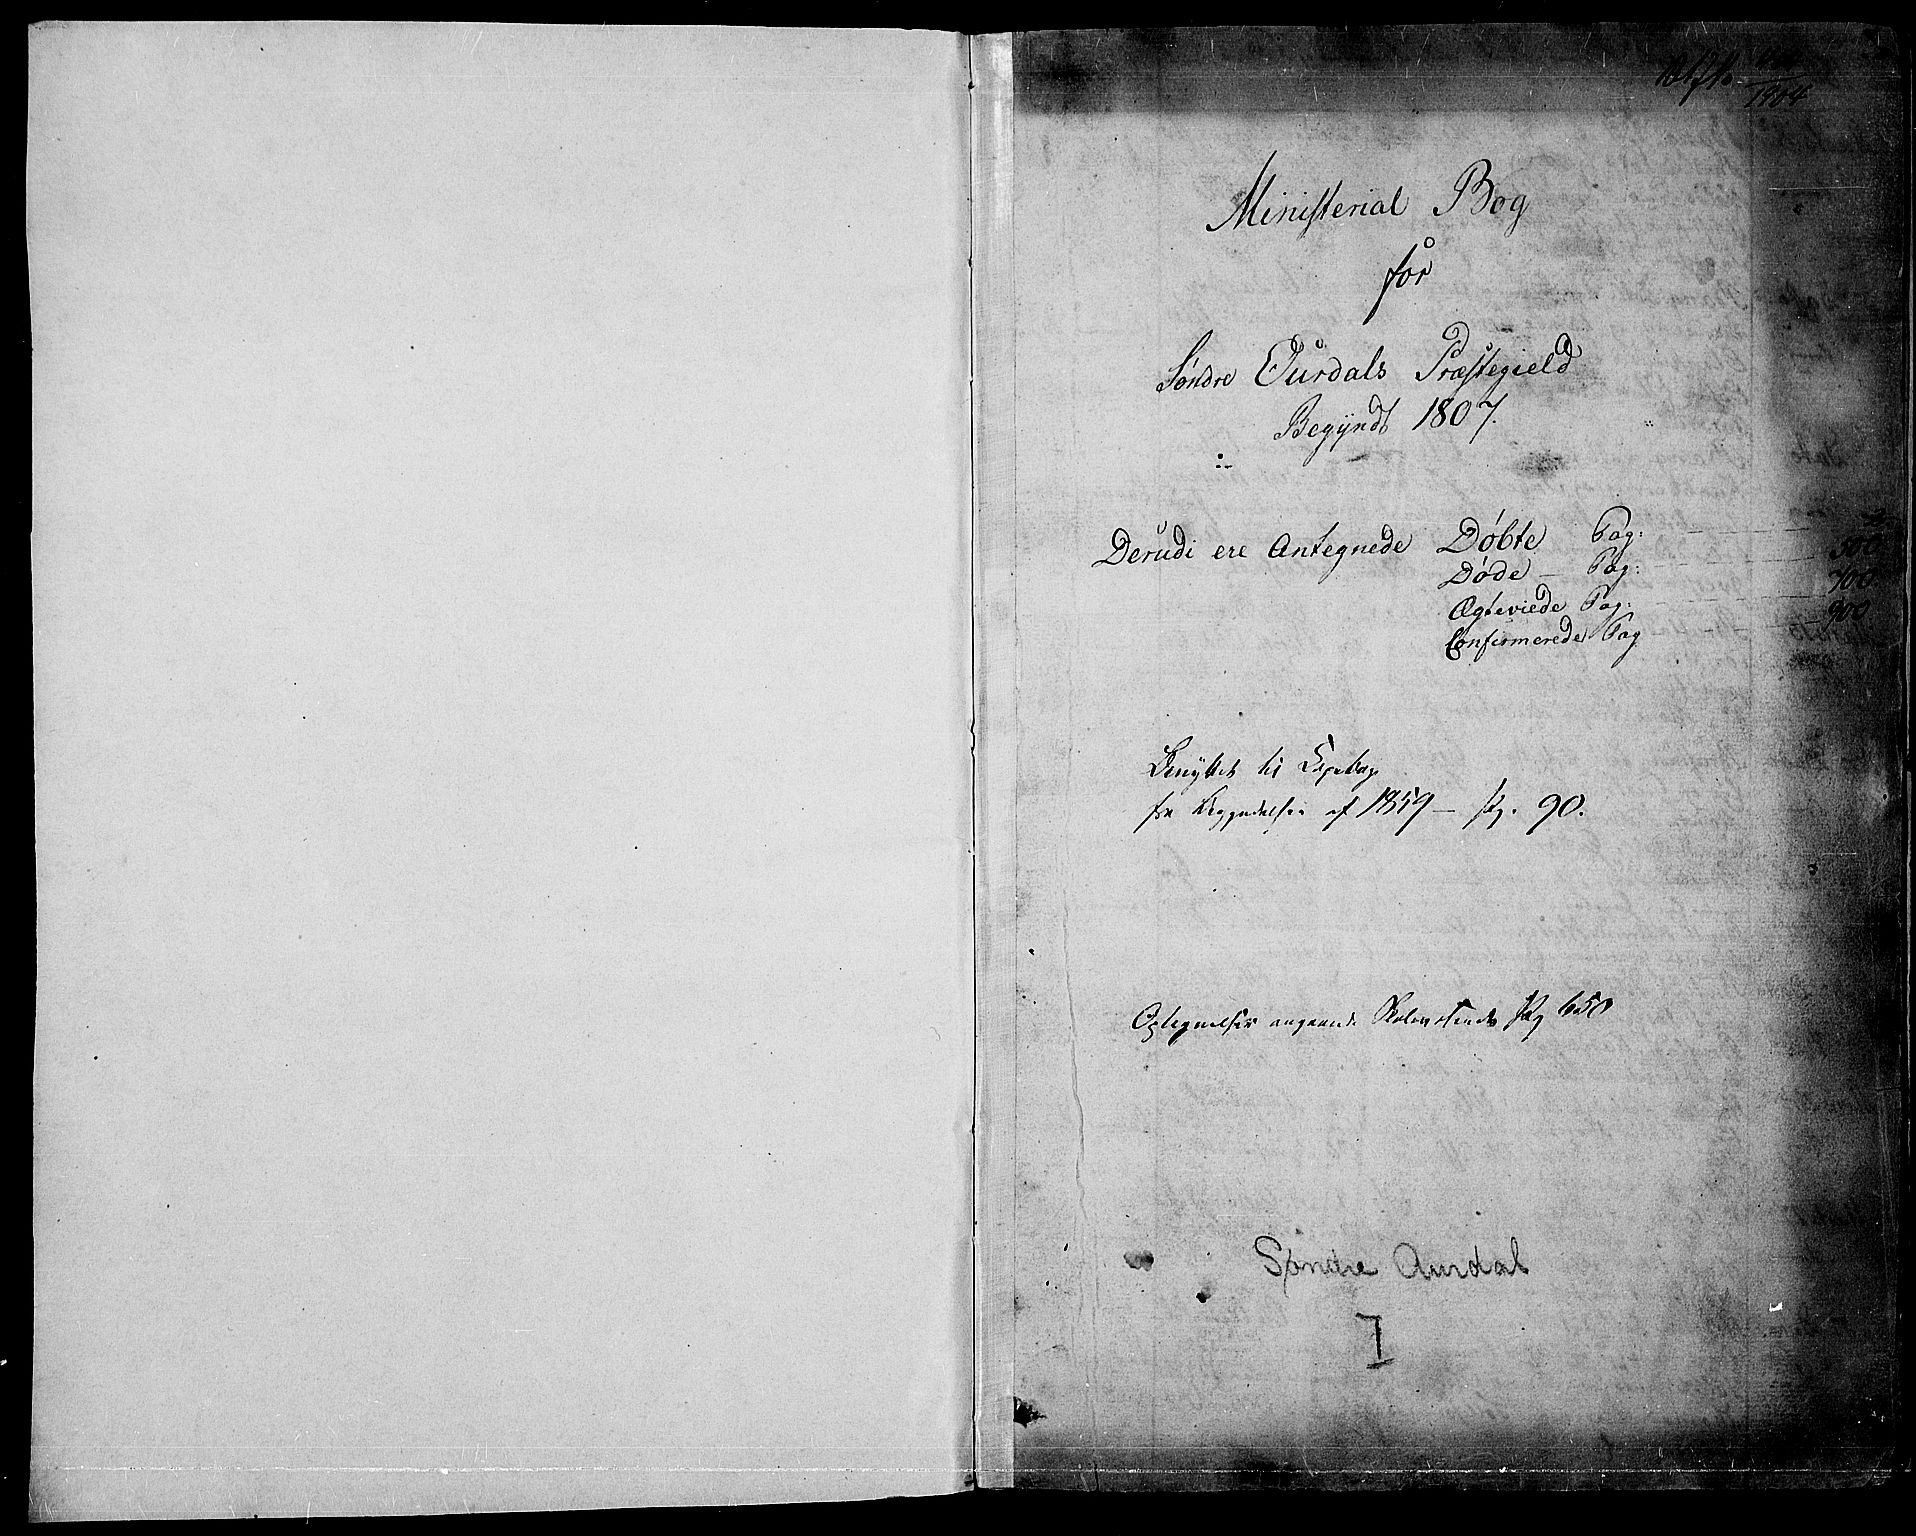 1904
Ministerial Bog
for
Søndre Ourdals Præstegield
Begyndt 1807.
Derudi ere Antegnede Døbte Pag: 2
Døde - Pag: 500
Ægteviede Pag: 700
Confirmerede Pag 900
Benyttet til Copiebog
fra Begyndelsen af 1859 - Pag. 90.
Optegnelser angaaende Skolevæsenet Pag 650
Søndre Aurdal
I